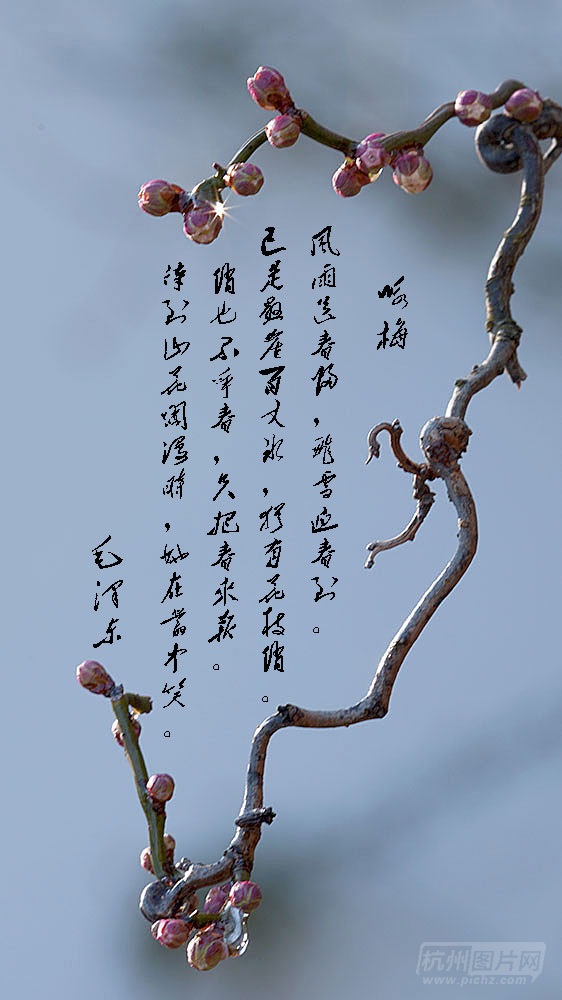 咏梅
風雨送春歸，飛雪迎春到。
已是懸崖百丈冰，猶有花枝俏。
俏也不爭春，只把春來報。
待到山花爛漫時，她在叢中笑。
毛澤东
杭州图片网
www.pichz.com